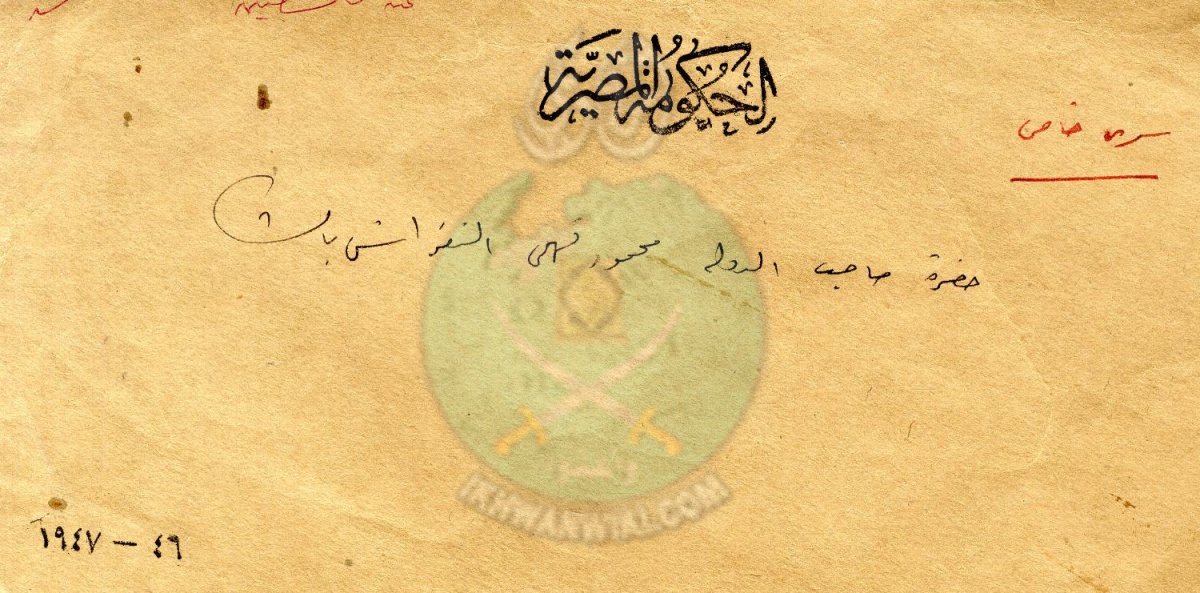 الحكومة المصرية
سرى خاص
حضرة صاحب الدولة محمود فهمى النقراشى باشا
IKHWANWIKI.COM
٤٦ — ١٩٤٧